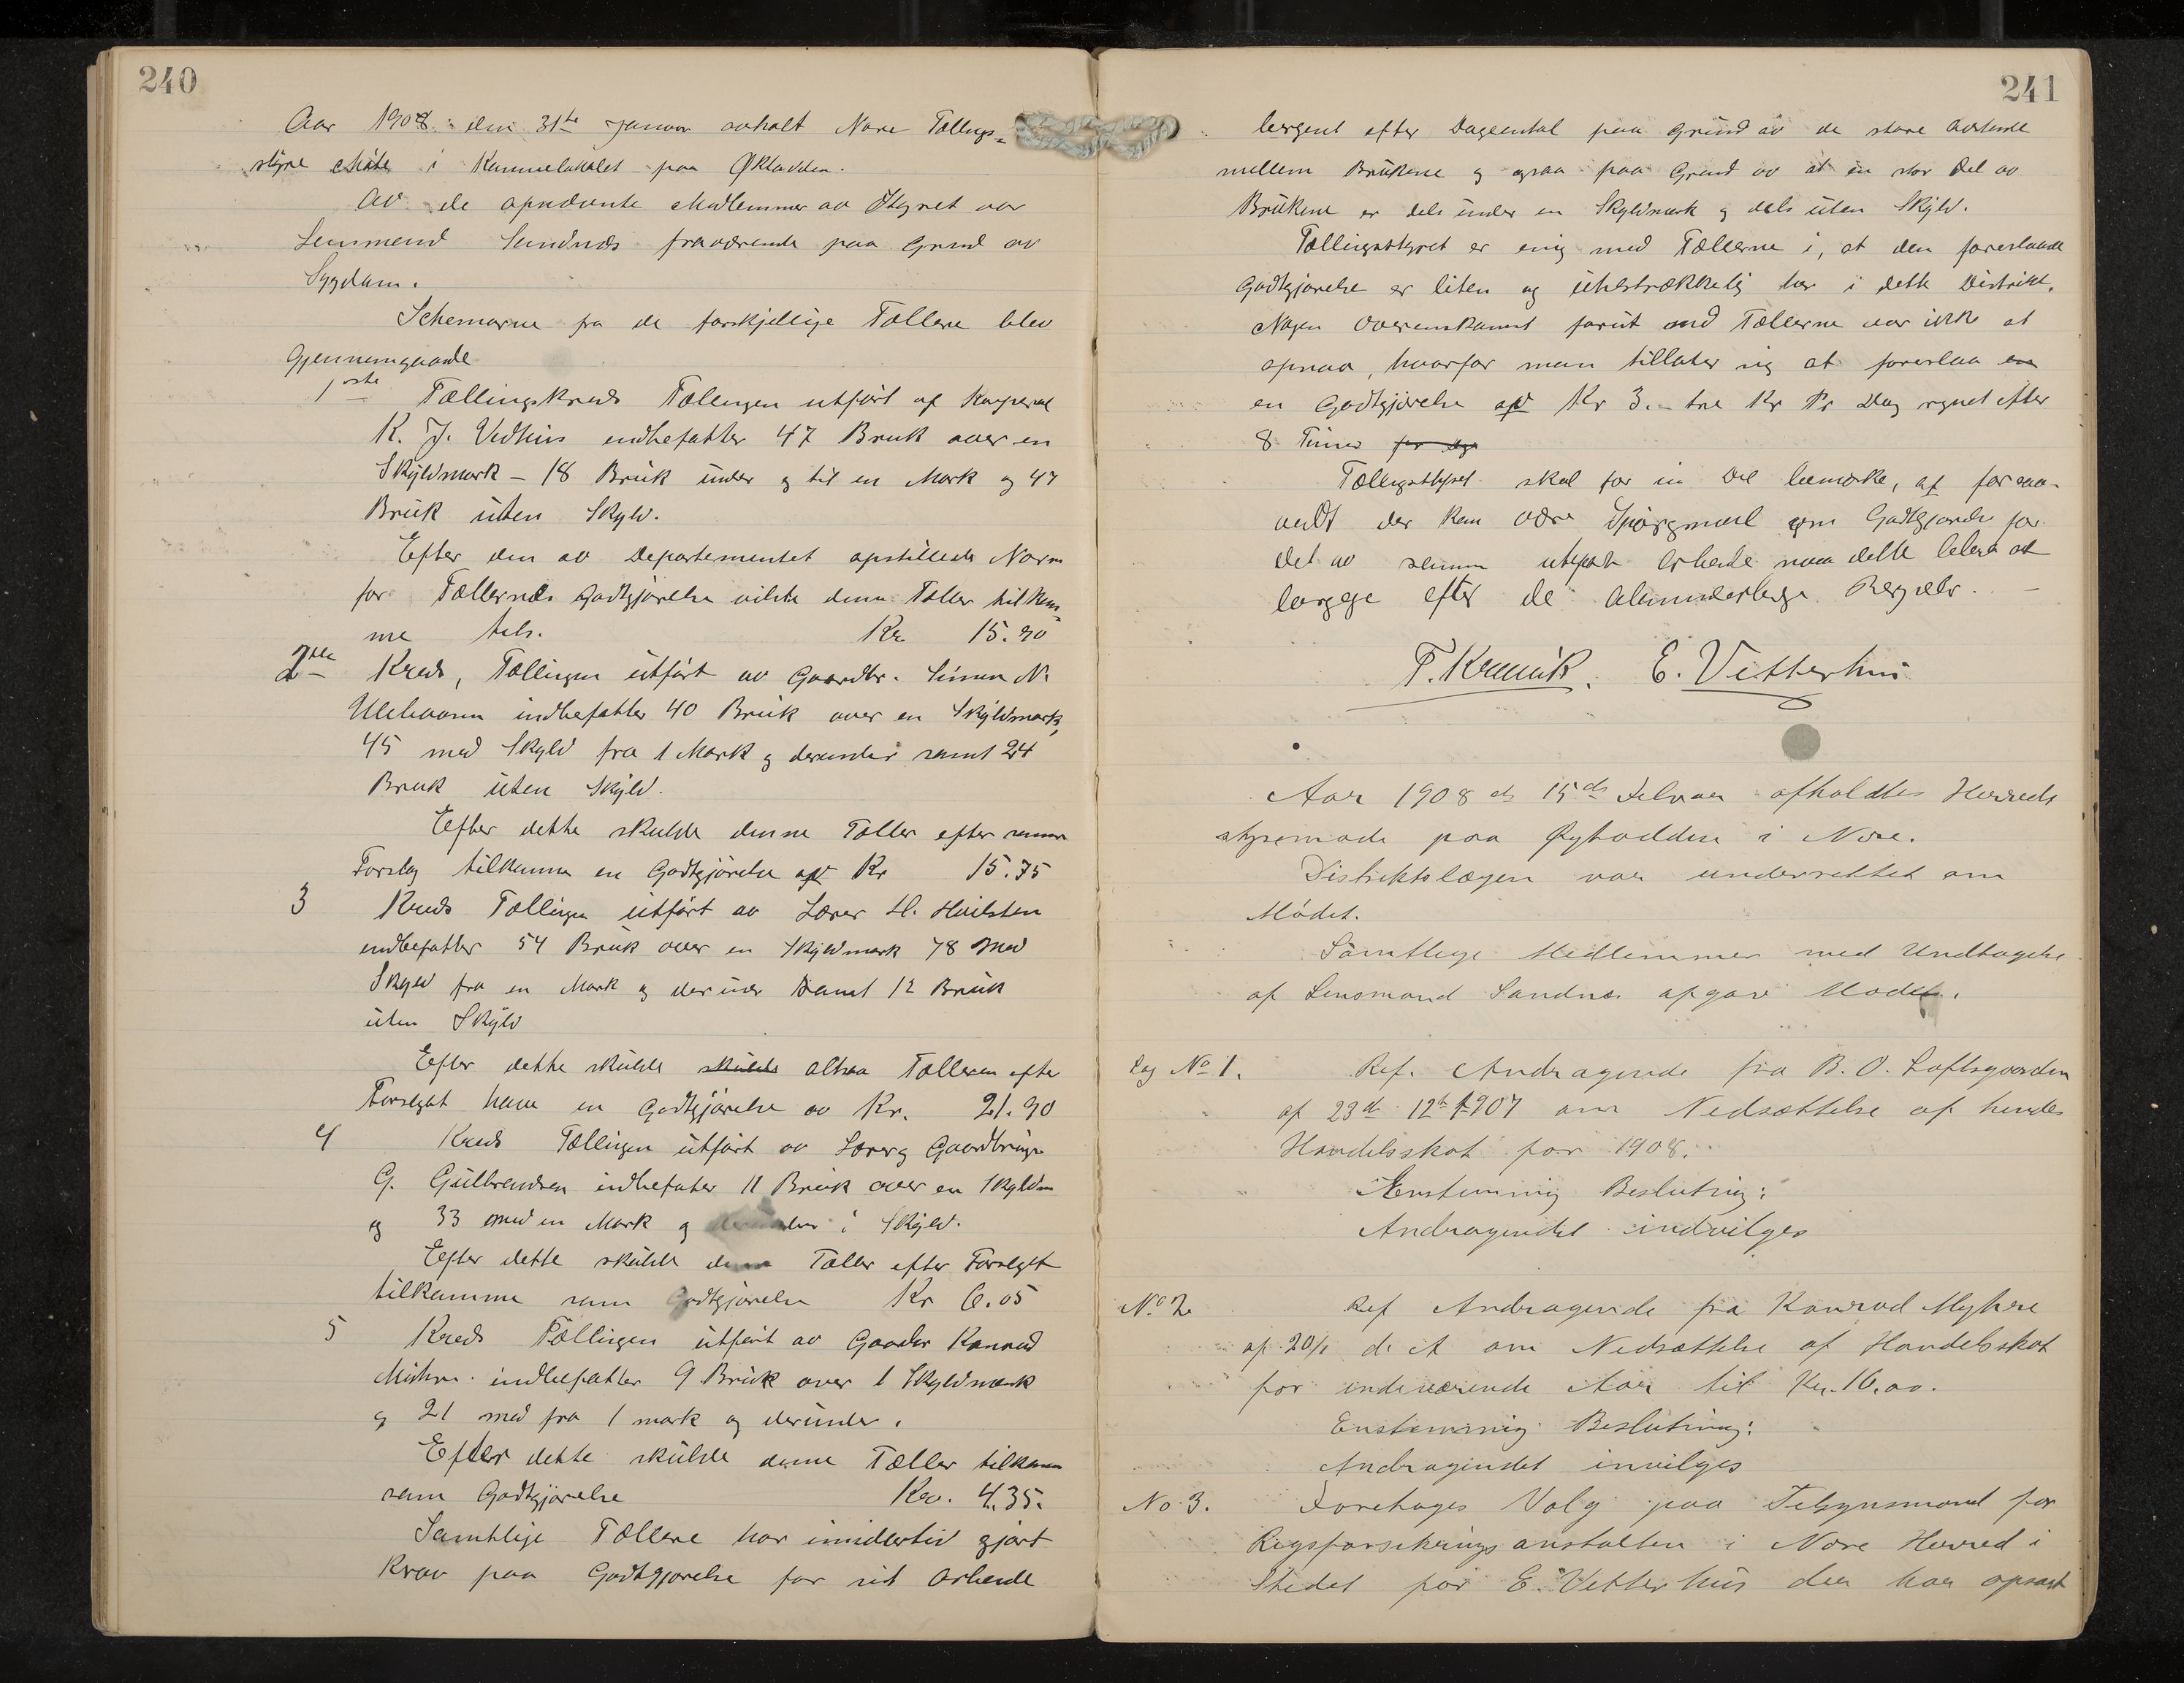 240
Aar 1908 den 31te Januar avholt Nore Tællings=
styre Møte i Kommunelokalet paa
Av de opnævnte Medlemmer av Styret var
Lensmand Sandnæs fraværende paa Grund av
Sygdom.
Schemaerne fra de forskjellige Tællere blev
gjennemgaaede
1ste Tællingskreds Tællingen utført af
K. J. Vethus indbefatter 47 Bruk over en
Skyldmark - 18 Bruk under og til en Mark og 47
Bruk uten Skyld.
Efter den av Departementet opstillede Norm
for Tællernes Godtgjørelse vilde denne Tæller tilkom
me tils. Kr 15.90
2den Kreds, Tællingen utført av Gaardbr. Simen N.
indbefatter 40 Bruk over en Skyldmark,
45 med Skyld fra 1 Mark og derunder samt 24
Bruk uten Skyld.
Efter dette skulde denne Tæller efter samme
Forslag tilkomme en Godtgjørelse af Kr 15.75
3 Kreds Tællingen utført av Lærer H. Hvilsten
indbefatter 54 Bruk over en Skyldmark 78 med
Skyld fra en Mark og derunder samt 12 Bruk
uten Skyld
Efter dette skulde skulde altsaa Tælleren efter
Forslaget have en Godtgjørelse av Kr. 21.90
4 Kreds Tællingen utført av Lærer og Gaardbruger
G. Gulbrandsen indbefatter 11 Bruk over en Skyldm
og 33 med en Mark og derunder i Skyld.
Efter dette skulde denne Tæller efter Forslaget
tilkomme som Godtgjørelse Kr 6.05
5 Kreds Tællingen utført av Gaardbr Konrad
indbefatter 9 Bruk over 1 Skyldmark
og 21 med fra 1 mark og derunder.
Efter dette skulde denne Tæller tilkomme
som Godtgjørelse Kr. 4.35.
Samtlige Tællere har imidlertid gjort
Krav paa Godtgjørelse for sit Arbeide
241
beregnet efter Dageantal paa Grund av de store Avstande
mellem Brukene og ogsaa paa Grund av at en stor Del av
Brukene er dels under en Skyldmark og dels uten Skyld.
Tællingsstyret er enig med Tællerne i, at den foreslaaede
Godtgjørelse er liten og utilstrækkelig her i dette Distrikt.
Nogen Overenskomst forut med Tællerne var ikke at
opnaa, hvorfor man tillater sig at foreslaa en
en Godtgjørelse af Kr 3.- tre Kr Pr Dag regnet efter
8 Timer
Tællingsstyret skal for sin Del bemærke, at forsaa-
vidt der kan være Spørgsmaal om Godtgjørelse for
det av samme utførte Arbeide maa dette bli at
lægge efter de almindelige Regler. -
T. Kravik. E. Vetterhus
Aar 1908 den 15de Februar afholdtes Herreds
styremøde paa i Nore.
Distriktslægen var underrettet om
Mødet.
Samtlige Medlemmer med Undtagelse
af Lensmand Sandnes afgav Møde.
Sag No 1. Ref. Andragende fra B. O. Loftsgaarden
af 23de 12te 1907 om Nedsættelse af hendes
Handelsskat for 1908.
Enstemmig Beslutning:
Andragendet indvilges
No 2 Ref Andragende fra Konrad Myhre
af 20/1 d. A om Nedsættelse af Handelsskat
for indeværende Aar til Kr. 10.00.
Enstemmig Beslutning:
Andragendet invilges
No 3. Foretages Valg paa Tilsynsmand for
Rigsforsikringsanstalten i Nore Herred i
Stedet for E. Vetterhus der har opsagt